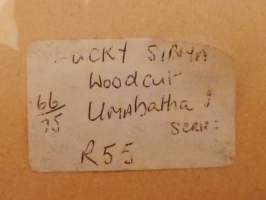 LUCKY SIBIYA
Woodcut
66/75 UMABATHA :
SERIES
R55